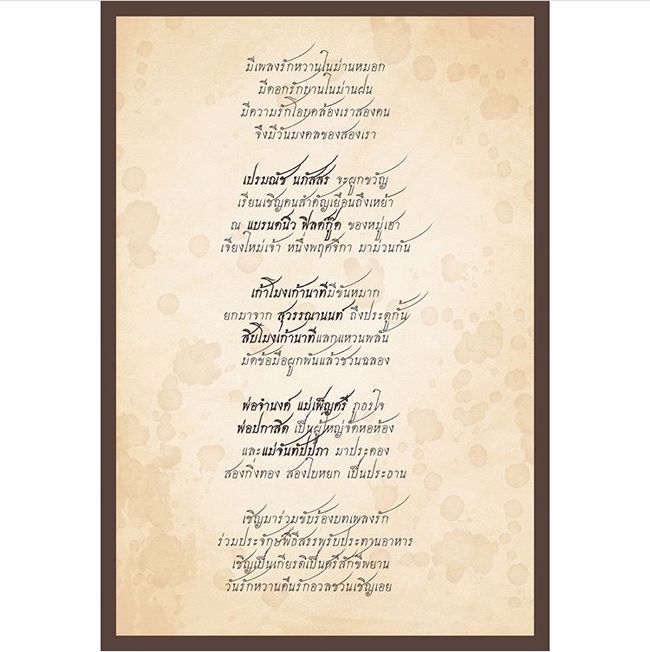 มีเพลงรักหวานในม่านหมอก
มีดอกรักบานในม่านฝน
มีความรักโอบคล้องเราสองคน
จึงมีวันมงคลของสองเรา
เปรมณัช นภัสสร จะผูกขวัญ
เรียนเชิญคนสำคัญเยือนถึงเหย้า
ณ แบรนด์นิว ฟิลด์กู๊ด ของหมู่เฮา
เจียงใหม่เจ้า หนึ่งพฤศจิกา มาม่วนกัน
เก้าโมงเก้านาทีมีขันหมาก
ยกมาจาก สุวรรณานนท์ ถึงประตูกั้น
สิบโมงเก้านาทีแลกแหวนพลัน
มัดข้อมือผูกพันแล้วชวนฉลอง
พ่อจำนงค์ แม่เพ็ญศรี ภูอรใจ
พ่อปกาสิต เป็นผู้ใหญ่จัดหอห้อง
และแม่จันทัปปภา มาประคอง
สองกิ่งทอง สองใบหยก เป็นประธาน
เชิญมาร่วมขับร้องบทเพลงรัก
ร่วมประจักษ์พิธีสรรพรับประทานอาหาร
เชิญเป็นเกียรติเป็นศรีสักขีพยาน
วันรักหวานคืนรักอวลชวนเชิญเอย